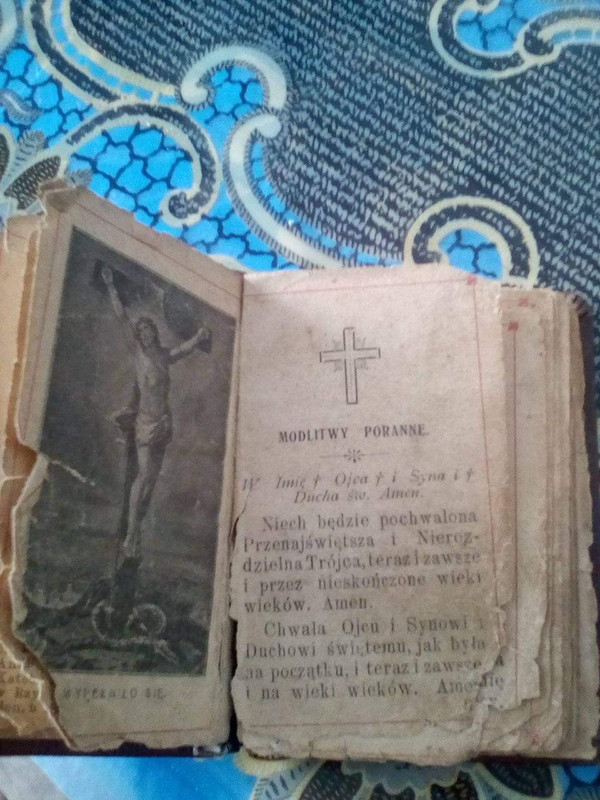 WYPEŁNIŁO SIĘ.
MODLITWY PORANNE.
W Imię † Ojca † i Syna i †
Ducha św. Amen.
Niech będzie pochwalona
Przenajświętsza i Nieroz-
dzielna Trójca, teraz i zawsze
i przez nieskończone wieki
wieków. Amen.
Chwała Ojcu i Synowi i
Duchowi świętemu, jak była
na początku, i teraz i zawsze
i na wieki wieków. Amen